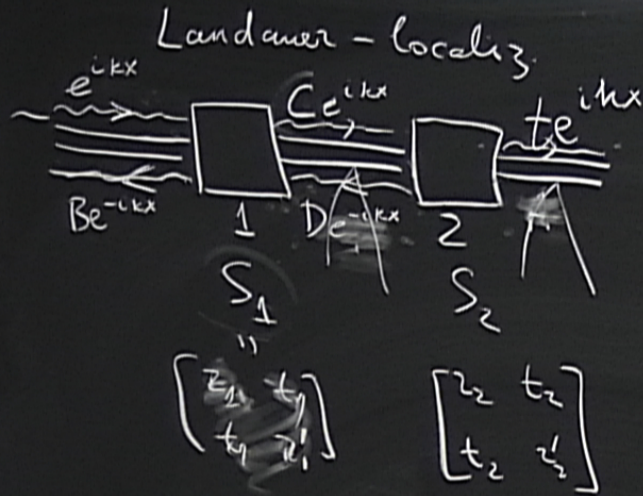 Landauer - localiz.
e^{ikx} Ce^{ikx} te^{ikx}
Be^{-ikx} 1 De^{-ikx} 2
S_1 S_2
"
[r_1 t_1 r_2 t_2
t_1 r'_1] t_2 r'_2]